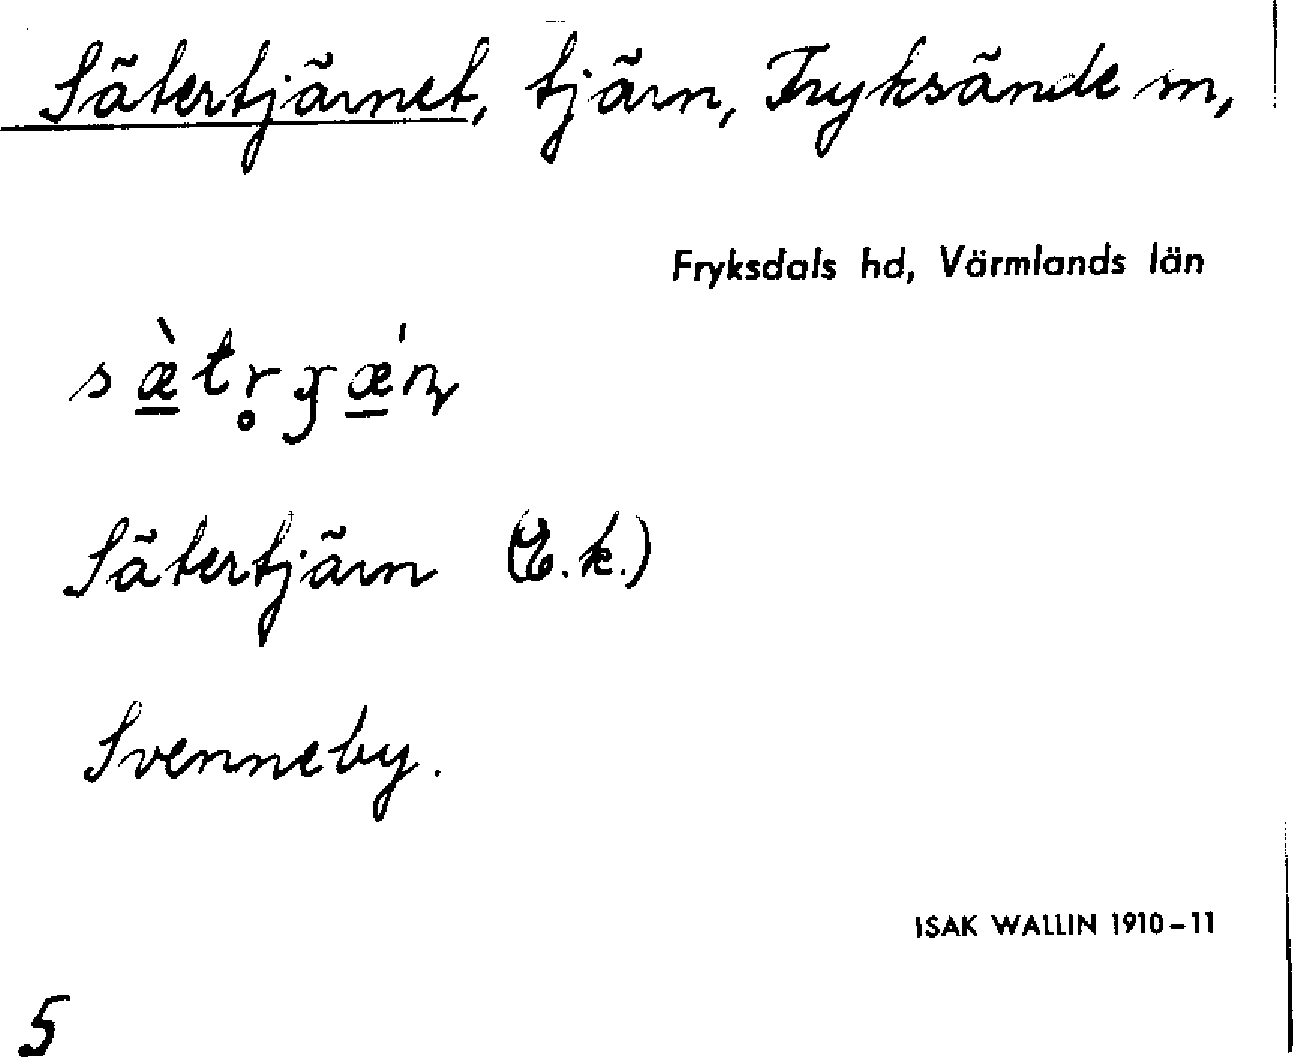 Sätertjärnet, tjärn, Fryksände sn,
Fryksdals hd, Värmlands län
Sätertjärn (E.k.)
Svenneby.
ISAK WALLIN 1910-11
5